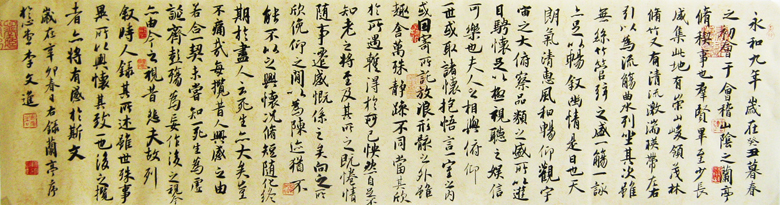 永和九年歲在癸丑暮春
之初會于會稽山陰之蘭亭
脩稧事也羣賢畢至少長
咸集此地有崇山峻領茂林
脩竹又有清流激湍暎帶左右
引以為流觴曲水列坐其次雖
無絲竹管弦之盛一觴一詠
亦足以暢叙幽情是日也天
朗氣清惠風和暢仰觀宇
宙之大俯察品類之盛所以遊
目騁懷足以極視聽之娛信
可樂也夫人之相與俯仰
一世或取諸懷抱悟言一室之內
或因寄所託放浪形骸之外雖
趣舍萬殊靜躁不同當其欣
於所遇暫得於己快然自足不
知老之將至及其所之既惓情
隨事遷感慨係之矣向之所
欣俛仰之間以為陳迹猶不
能不以之興懷況脩短隨化終
期於盡古人云死生亦大矣豈
不痛哉每攬昔人興感之由
若合一契未嘗知死生為虛
誕齊彭殤為妄作後之視今
亦由今之視昔悲夫故列
叙時人錄其所述雖世殊事
異所以興懷其致一也後之攬
者亦將有感於斯文
歲在辛卯春日右錄蘭亭序
李文進